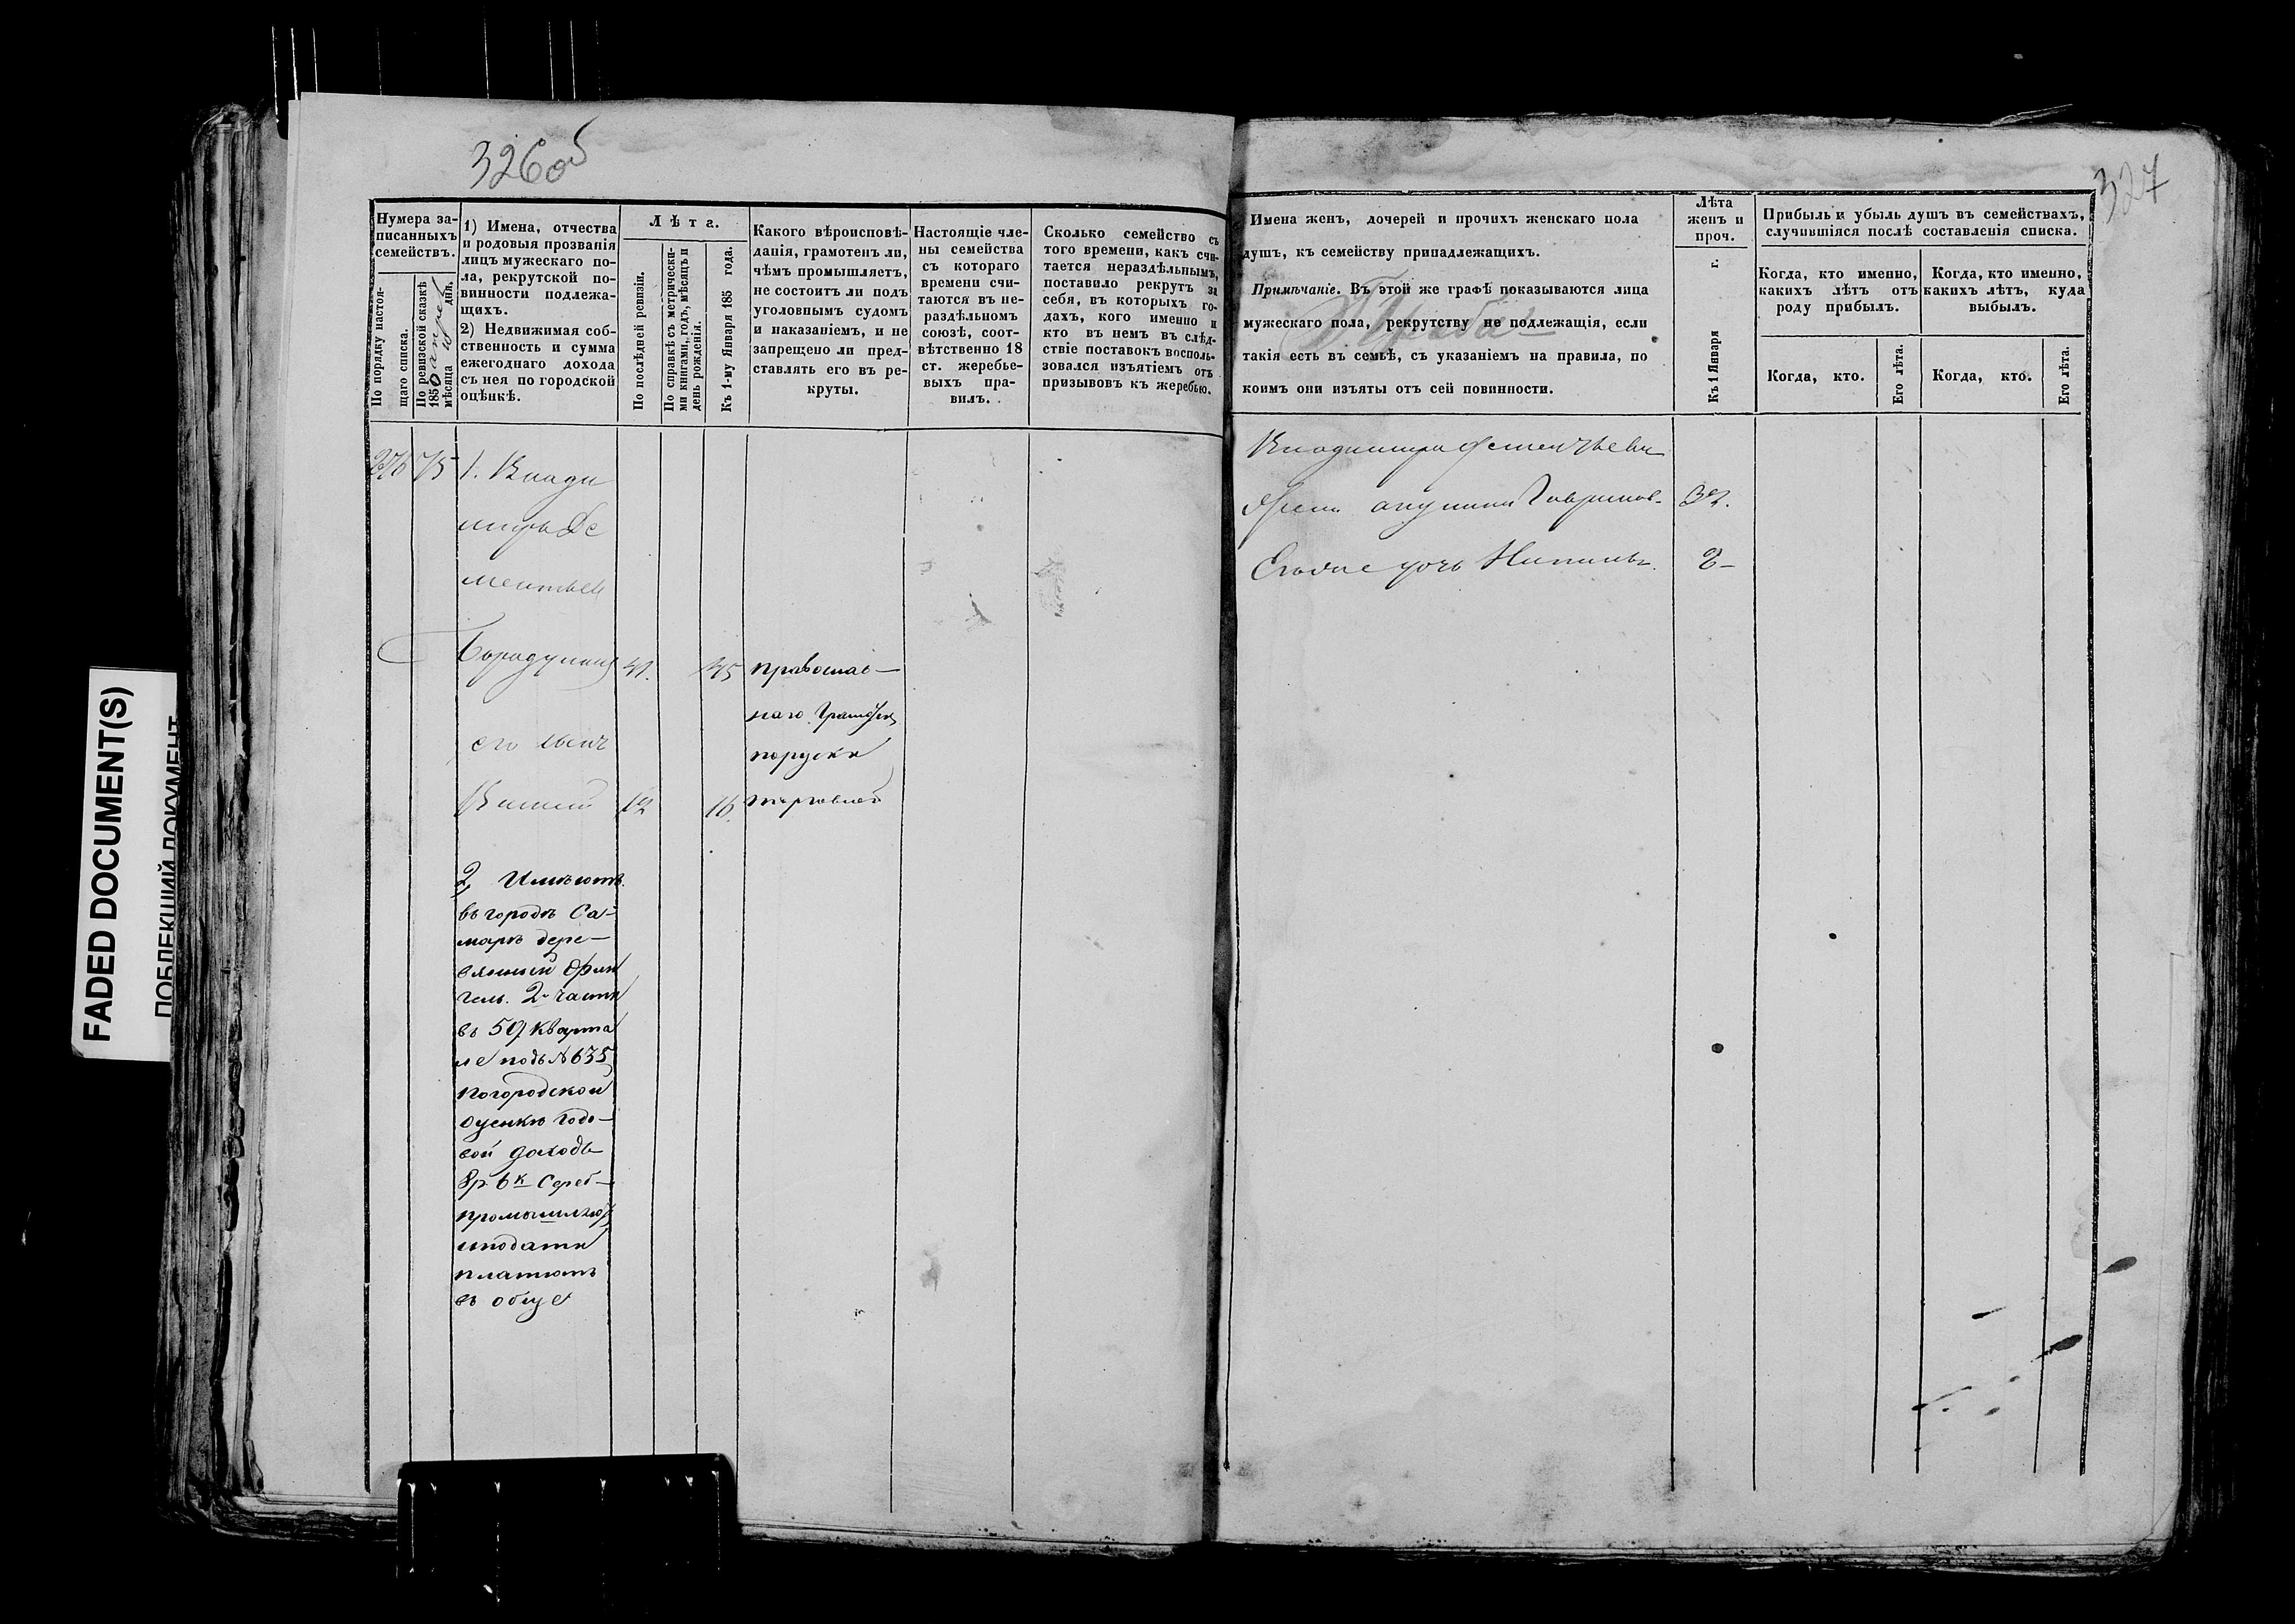 326об
Нумера за-
писанныхъ
семействъ.
По порядку настоя-
щаго списка.
По ревизской сказкѣ
1850
мѣсяца дня.
1) Имена, отчества
и родовыя прозванія
лицъ мужескаго по-
ла, рекрутской по-
винности подлежа-
щихъ.
2) Недвижимая соб-
ственность и сумма
ежегоднаго дохода
съ нея по городской
оцѣнкѣ.
Лѣта.
По послѣдней ревизіи.
По справкѣ съ метрически-
ми книгами, годъ, мѣсяцъ и
день рожденія.
Къ 1-му Января 185 года.
Какого вѣроисповѣ-
данія, грамотенъ ли,
чѣмъ промышляетъ,
не состоитъ ли подъ
уголовнымъ судомъ
и наказаніемъ, и не
запрещено ли пред-
ставлять его въ ре-
круты.
Настоящіе чле-
ны семейства
съ котораго
времени счи-
таются въ не-
раздѣльномъ
союзѣ, соот-
вѣтственно 18
ст. жеребье-
выхъ пра-
вилъ.
Сколько семейство съ
того времени, какъ счи-
тается нераздѣльнымъ,
поставило рекрутъ за
себя, въ которыхъ го-
дахъ, кого именно и
кто въ немъ въ слѣд-
ствіе поставокъ восполь-
зовался изъятіемъ отъ
призывовъ къ жеребью.
276 75 1. Влади
миръ Де
ментьев
41. 45 православ-
наго
его сынъ
порусски
12 16. торговлей
2, Имѣютъ
въ городѣ Са-
марѣ дере-
вянный фли
гель. 2 части
въ 59 кварта
ле подъ №635
погородской
оценкѣ годо-
вой доходъ
8р 6к Сереб-
промышляю
иподати
платютъ
въ обще
327
Имена женъ, дочерей и прочихъ женскаго пола
душъ, къ семейству принадлежащихъ.
Примѣчаніе. Въ этой же графѣ показываются лица
мужескаго пола, рекрутству не подлежащія, если
такія есть въ семьѣ, съ указаніемъ на правила, по
коимъ они изъяты отъ сей повинности.
Лѣта
женъ и
проч.
Къ 1 Января г.
Прибыль и убыль душъ въ семействахъ,
случившіяся послѣ составленія списка.
Когда, кто именно,
какихъ лѣтъ отъ
роду прибылъ.
Когда, кто именно,
какихъ лѣтъ, куда
выбылъ.
Когда, кто.
Его лѣта.
Когда, кто.
Его лѣта.
Владимира Дементьева
жена Гаврилов- 32.
дочь
FADED DOCUMENT(S)
ПОБЛЕКШИЙ ДОКУМЕНТ